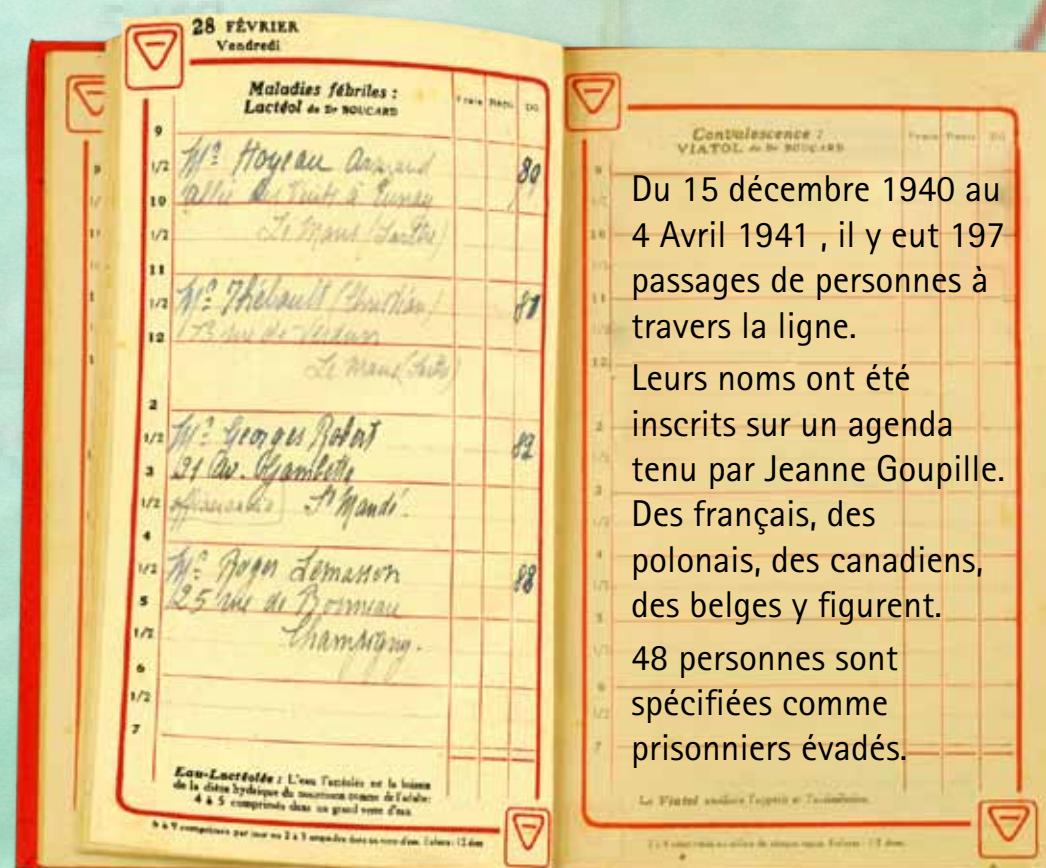 28 FÉVRIER
Vendredi
Maladies fébriles :
Lactéol du Dr BOUCARD
9
1/2 Mr Hoyeau Armand 80
10 allée des à
1/2 Le Mans (Sarthe)
11
1/2 Mr Thiebault (Christian) 81
12 73 rue de Verdun
Le Mans (Sarthe)
2
1/2 Mr Georges Robert 82
3 21 Av. Gambetta
1/2 St Mandé.
4
1/2 Mr Roger Lemasson 88
5 25 rue de Bonneau
1/2 Champigny.
6
1/2
7
Eau-Lactéolée : L'eau lactéolée est la boisson
de la diète hydrique du nourrisson comme de l'adulte:
4 à 5 comprimés dans un grand verre d'eau
Convalescence :
VIATOL du Dr BOUCARD
Du 15 décembre 1940 au
4 Avril 1941 , il y eut 197
passages de personnes à
travers la ligne.
Leurs noms ont été
inscrits sur un agenda
tenu par Jeanne Goupille.
Des français, des
polonais, des canadiens,
des belges y figurent.
48 personnes sont
spécifiées comme
prisonniers évadés.
Le Viatol améliore l'appétit et l'assimilation.